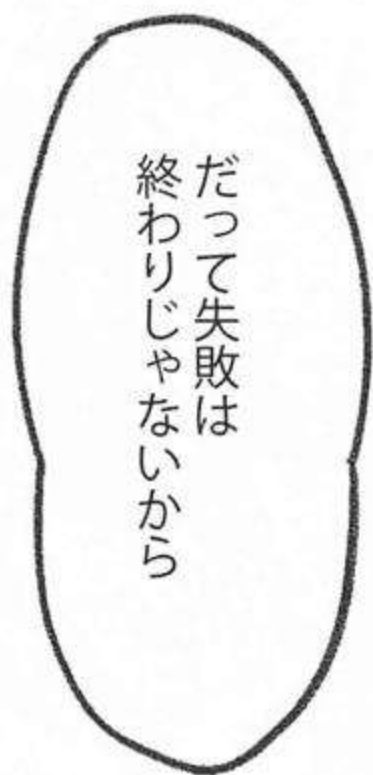 だって失敗は
終わりじゃないから